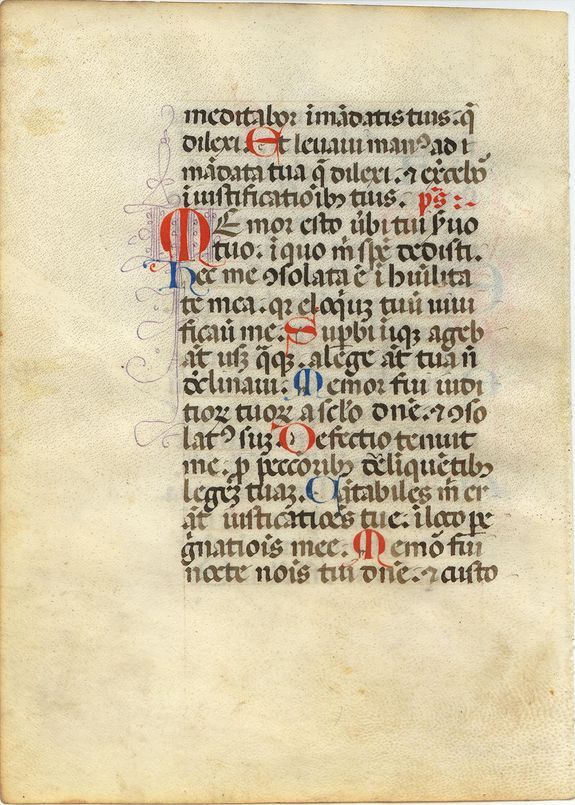 meditabor i mādatis tuis. q̄
dilexi. Et levavi manꝰ ad i
mādata tua q̄ dilexi. ⁊ exercebꝰ
i iustificatioībꝫ tuis. ps̄
MEmor esto ūbi tui s̓uo
tuo. i quo m̄ spē dedisti.
Hec me ꝯsolata ē i hūilita
te mea. qꝛ eloq̄uꝫ tuū vivi
ficaū me. Supbi iiqꝫ ageb
āt usꝫ q̄qꝫ. a lege āt tua n̄
declinavi. Memor fui iudi
tioꝝ tuoꝝ a sclo dn̄e. ⁊ ꝯso
latꝰ suꝫ. Defectio tenuit
me. ꝓ peccoribꝫ deliquētibꝫ
legeꝫ tuaꝫ. Cātabiles m̄ er
āt iustificatiōes tue. i loco pe
gnatiois mee. Memō fui
nocte nois tui dn̄e. ⁊ custo